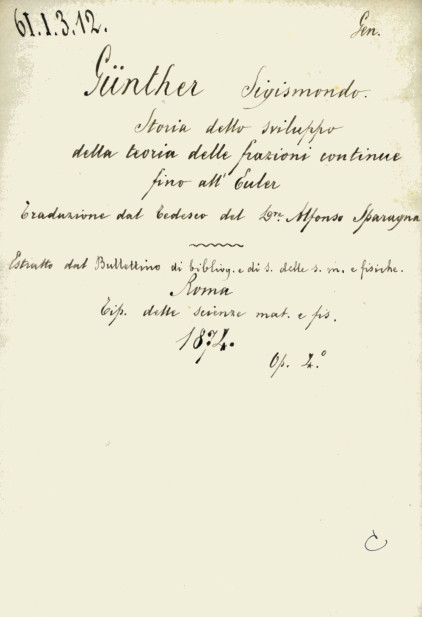 61.1.3.12.
Gen.
Günther Sigismondo.
Storia dello sviluppo
della teoria delle frazioni continue
fino all' Euler
Traduzione dal tedesco del Dre Alfonso Sparagna
Estratto dal Bullettino di bibliog. e di s. delle s. m. e fisiche.
Roma
Tip. delle scienze mat. e fis.
1874.
Op. 4.°
C